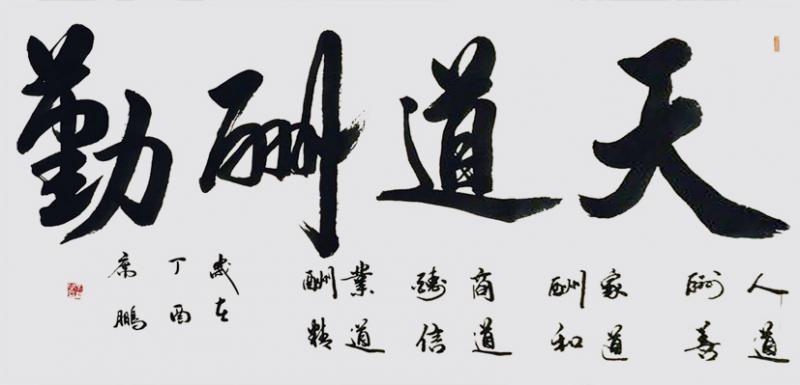 天道酬勤
人道
酬善
家道
酬和
商道
醻信
業道
酬精
歲在
丁酉
鵬